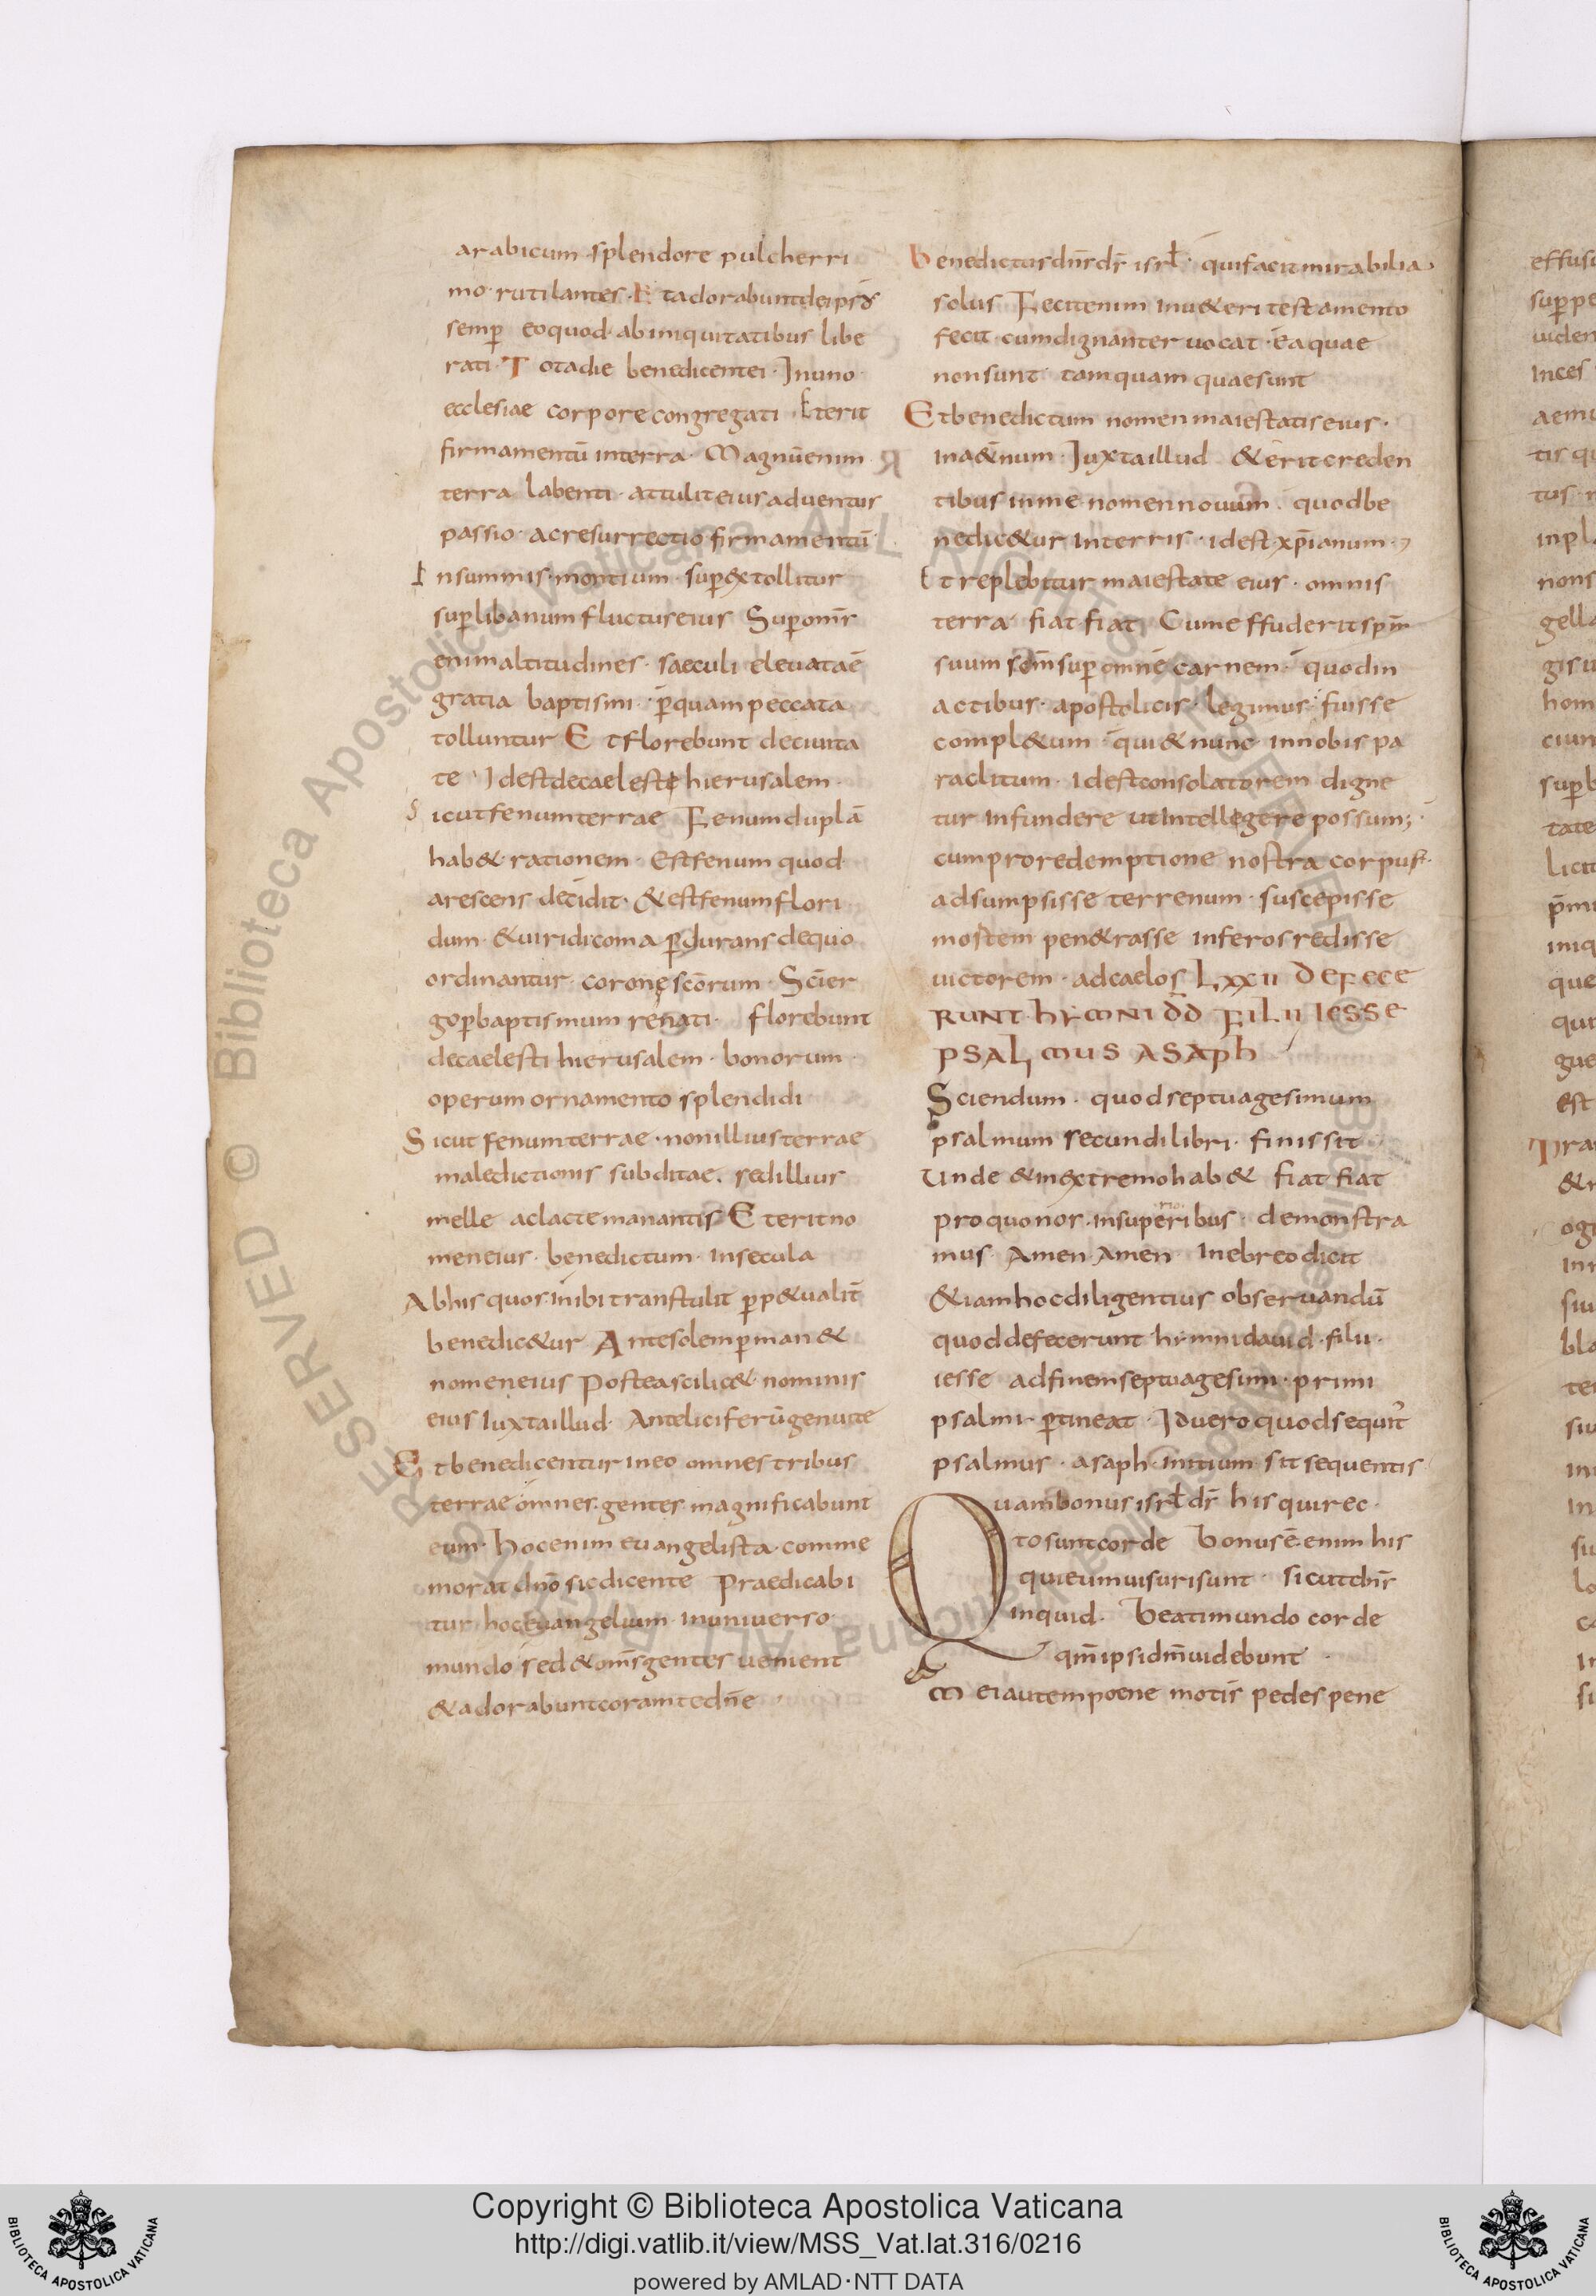 arabicum splendore pulcherri
mo rutilantes · Et adorabunt de ipso
semp̄ eo quod ab iniquitatibus libe
rati · Tota die benedicent ei · In uno
ecclesiae corpore congregati Et erit
firmamentū in terra · Magnū enim
terra labenti · attulit eius aduentus
passio · ac resurrectio firmamentū
In summis montium · sup̄extollitur
sup̄ libanum fluctus eius Sup̄ om̄s
enim altitudines · saeculi eleuatae
gratia baptismi · p̄ quam peccata
tolluntur Et florebunt de ciuita
te · Idest de caeleste hierusalem ·
Sicut fenum terrae Fenum duplā
hab& rationem · Est fenum quod
arescens decidit · & est fenum flori
dum · & uiridi coma p̄durans de quo
ordinantur coronę sc̄orum · Sc̄i er
go p̄ baptismum renati · florebunt
de caelesti hierusalem · bonorum
operum ornamento splendidi
Sicut fenum terrae · non illius terrae
maledictionis subditae . sed illius
melle ac lacte manantis Et erit no
men eius · benedictum · in secula
Ab his quos inibi transtulit p̄p&ualit̄
benedic&ur Ante solem p̄man&
nomen eius Postea scilic& nominis
eius Iuxta illud · Ante luciferū genui te
Et benedicentur in eo omnes tribus
terrae omnes gentes magnificabunt
eum · Hoc enim euangelista · comme
morat dn̄o sic dicente Praedicabi
tur · hoc euangelium · in uniuerso
mundo sed & om̄s gentes uenient
& adorabunt coram te dn̄e
Benedictus dn̄s ds̄ isrł · qui facit mirabilia
solus Fecit enim in u&eri testamento
fecit cum dignanter uocat · ea quae
non sunt · tamquam quae sunt
Et benedictum nomen maiestatis eius ·
in a&̄num · Iuxta illud & erit creden
tibus in me nomen nouum · quod be
nedic&ur in terris · id est xp̄ianum ·
Et replebitur maiestate eius · omnis
terra · fiat fiat Cum effuderit sp̄m
suum sc̄m sup̄ omnē carnem · quod in
actibus · apostolicis · legimus · fuisse
compl&um · qui & nunc in nobis pa
raclitum · id est consolatorem digne
tur infundere ut intellegere possum;
cum pro redemptione nostra corpus ·
adsumpsisse terrenum · suscepisse
mortem pen&rasse inferos redisse
uictorem · ad caelos LXXII DEFECE
RUNT HYMNI DD FILII IESSE
PSALMUS ASAPH
Sciendum · quod septuagesimum
psalmum secundi libri · finis sit
Unde & in extremo hab& fiat fiat
pro quo nos · in superioribus · demonstra
mus Amen Amen In ebreo dicit
& iam hoc diligentius obseruandū
quod defecerunt hymni dauid · filii ·
iesse ad finem septuagesimi · primi
psalmi · p̄tineat · Id uero quod sequit̄
psalmus · asaph · initium sit sequentis
Quam bonus isrł ds̄ his qui rec
to sunt corde Bonus ē enim his
qui eum uisuri sunt · Sicut dn̄s
inquid · Beati mundo corde
qm̄ ipsi dm̄ uidebunt
Mei autem poene moti s̄ pedes pene
Copyright © Biblioteca Apostolica Vaticana
http://digi.vatlib.it/view/MSS_Vat.lat.316/0216
powered by AMLAD·NTT DATA